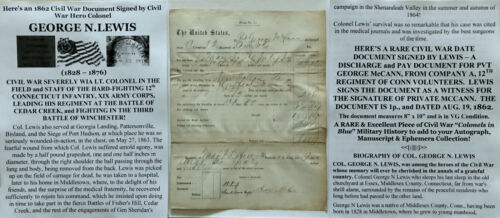 Here's an 1862 Civil War Document Signed by Civil
War Hero Colonel
GEORGE N. LEWIS
(1828 ~ 1876)
CIVIL WAR SEVERELY WIA LT. COLONEL IN THE
FIELD and STAFF OF THE HARD-FIGHTING 12th
CONNECTICUT INFANTRY, XIX ARMY CORPS,
LEADING HIS REGIMENT AT THE BATTLE OF
CEDAR CREEK, and FIGHTING IN THE THIRD
BATTLE OF WINCHESTER!
Col. Lewis also served at Georgia Landing, Pattersonville,
Bisland, and the Siege of Port Hudson, at which place he was so
seriously wounded-in-action, in the chest, on May 27, 1863. The
fearful wound from which Col. Lewis suffered untold agony, was
made by a half pound grapeshot, one and one half inches in
diameter, through the right shoulder the ball passing through the
lung and body, being removed from the back. Lewis was picked
up on the field of carnage for dead, he was taken to a hospital,
later to his home in Middletown, where, to the delight of his
friends, and the surprise of the medical fraternity, he recovered
sufficiently to rejoin his command, which he insisted upon doing
in time to take part in the fierce Battles of Fisher's Hill, Cedar
Creek, and the rest of the engagements of Gen Sheridan's
The United States,
campaign in the Shenandoah Valley in the summer and autumn of
1864!
Colonel Lewis' survival was so remarkable that his case was cited
in the medical journals and was investigated by the best surgeons
of the time.
HERE'S A RARE CIVIL WAR DATE
DOCUMENT SIGNED BY LEWIS – A
DISCHARGE and PAY DOCUMENT FOR PVT
GEORGE McCANN, FROM COMPANY A, 12TH
REGIMENT OF CONN VOLUNTEERS. LEWIS
SIGNS THE DOCUMENT AS A WITNESS FOR
THE SIGNATURE OF PRIVATE McCANN. THE
DOCUMENT IS 1p., and DATED AUG. 19, 1862.
The document measures 8" x 10" and is in VG Condition.
A RARE & Excellent Piece of Civil War "Colonels in
Blue" Military History to add to your Autograph,
Manuscript & Ephemera Collection!
BIOGRAPHY OF COL. GEORGE N. LEWIS
COL. GEORGE N. LEWIS, was among the heroes of the Civil War
whose memory will ever be cherished in the annals of a grateful
country. Colonel George N. Lewis who sleeps his last sleep in the old
churchyard at Essex, Middlesex County, Connecticut, far from war's
shrill alarm, surrounded by the remains of the peaceful residents who
long before had passed to the other land.
George N Lewis was a native of Middlesex County, Conn., having been
born in 1828 in Middletown, where he grew to young manhood.